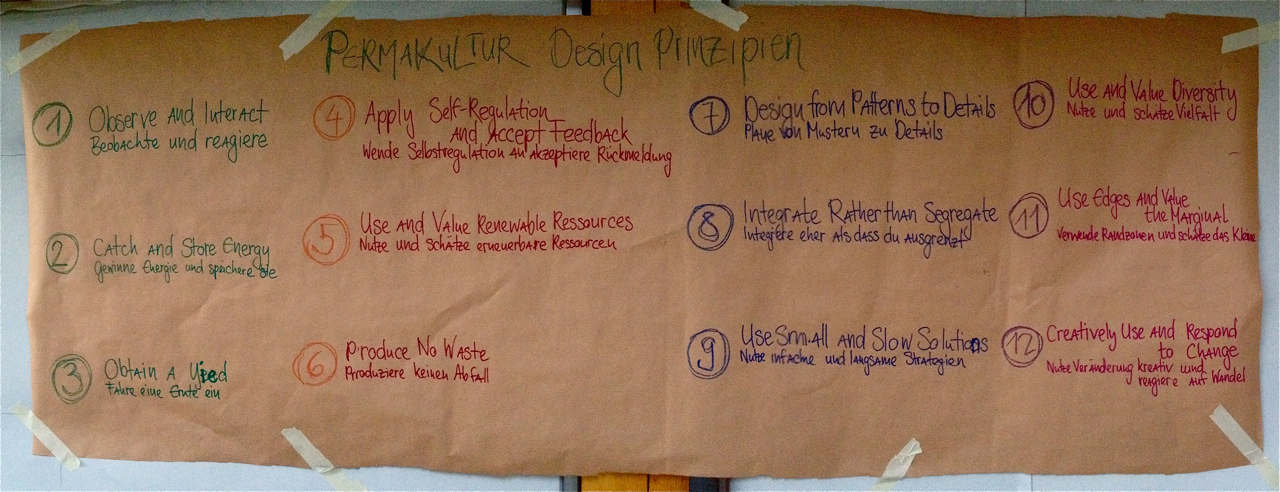 PERMAKULTUR Design Prinzipien
1 Observe and Interact
Beobachte und reagiere
2 Catch and Store Energy
Gewinne Energie und speichere sie
3 Obtain a Yied
Fahre eine Ernte ein
4 Apply Self-Regulation
and Accept Feedback
Wende Selbstregulation an akzeptiere Rückmeldung
5 Use and Value Renewable Ressources
Nutze und schätze erneuerbare Ressourcen
6 Produce No Waste
Produziere keinen Abfall
7 Design from Patterns to Details
Plane von Mustern zu Details
8 Integrate Rather than Segregate
Integrere eher als dass du ausgrenzt
9 Use Small and Slow Solutions
Nutze einfache und langsame Strategien
10 Use and Value Diversity
Nutze und schätze Vielfalt
11 Use Edges and Value
the Marginal
Verwende Randzonen und schätze das Kleine
12 Creatively Use and Respond
to Change
Nutze Veränderung kreativ und
reagiere auf Wandel